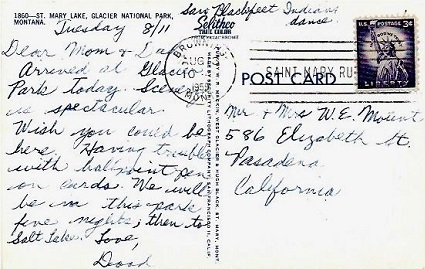 1860—ST. MARY LAKE, GLACIER NATIONAL PARK,
MONTANA.
Tuesday 8/11
Dear Mom & Dad
Arrived at Glacier
Park today. Scenery
is spectacular.
Wish you could be
here. Having trouble
with ballpoint pen
on cards. We will
be in this park
five nights, then to
Salt Lake. Love,
Saw Blackfeet Indians
dance.
Selithco
TRUE COLOR
BROWNING
AUG
10
MONT.
POST CARD
SAINT MARY
U.S. POSTAGE 3¢
LIBERTY
Mr & Mrs W.E. Mount
586 Elizabeth St.
Pasadena
California